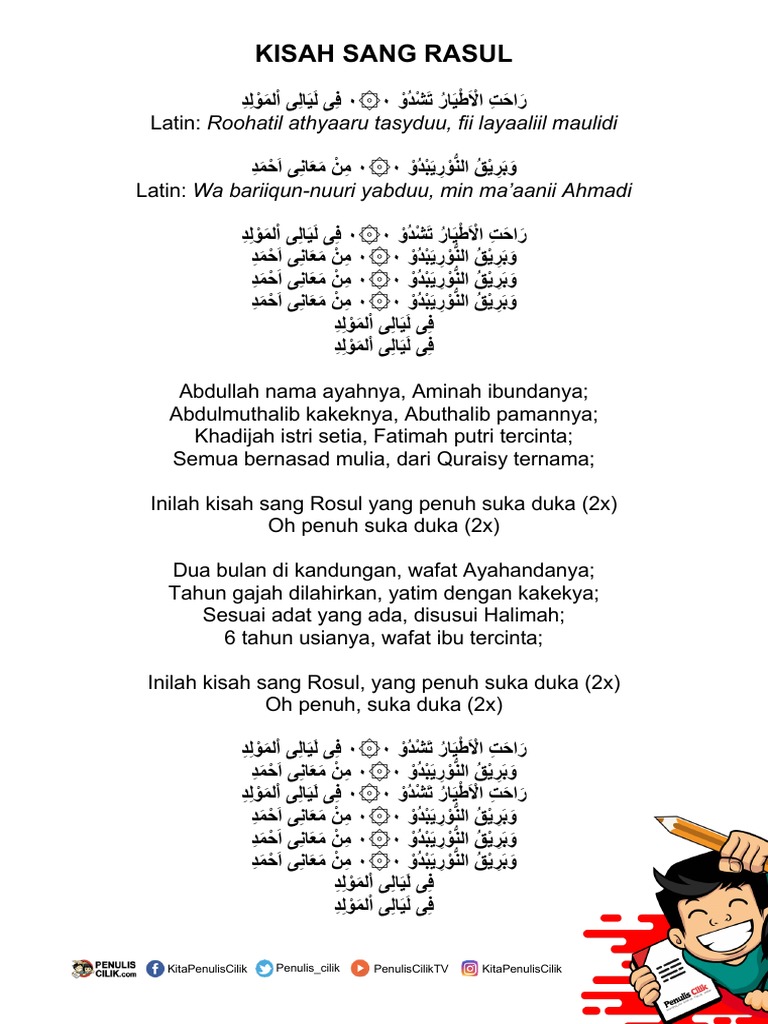 KISAH SANG RASUL
رَاحَتِ الْاَطْيَارُ تَشْدُوْ ۰۞۰ فِى لَيَالِى اْلمَوْلِدِ
Latin: Roohatil athyaaru tasyduu, fii layaaliil maulidi
وَبَرِيْقُ النُّوْرِيَبْدُوْ ۰۞۰ مِنْ مَعَانِى اَحْمَدِ
Latin: Wa bariiqun-nuuri yabduu, min ma’aanii Ahmadi
رَاحَتِ الْاَطْيَارُ تَشْدُوْ ۰۞۰ فِى لَيَالِى اْلمَوْلِدِ
وَبَرِيْقُ النُّوْرِيَبْدُوْ ۰۞۰ مِنْ مَعَانِى اَحْمَدِ
وَبَرِيْقُ النُّوْرِيَبْدُوْ ۰۞۰ مِنْ مَعَانِى اَحْمَدِ
وَبَرِيْقُ النُّوْرِيَبْدُوْ ۰۞۰ مِنْ مَعَانِى اَحْمَدِ
فِى لَيَالِى اْلمَوْلِدِ
فِى لَيَالِى اْلمَوْلِدِ
Abdullah nama ayahnya, Aminah ibundanya;
Abdulmuthalib kakeknya, Abuthalib pamannya;
Khadijah istri setia, Fatimah putri tercinta;
Semua bernasad mulia, dari Quraisy ternama;
Inilah kisah sang Rosul yang penuh suka duka (2x)
Oh penuh suka duka (2x)
Dua bulan di kandungan, wafat Ayahandanya;
Tahun gajah dilahirkan, yatim dengan kakekya;
Sesuai adat yang ada, disusui Halimah;
6 tahun usianya, wafat ibu tercinta;
Inilah kisah sang Rosul, yang penuh suka duka (2x)
Oh penuh, suka duka (2x)
رَاحَتِ الْاَطْيَارُ تَشْدُوْ ۰۞۰ فِى لَيَالِى اْلمَوْلِدِ
وَبَرِيْقُ النُّوْرِيَبْدُوْ ۰۞۰ مِنْ مَعَانِى اَحْمَدِ
رَاحَتِ الْاَطْيَارُ تَشْدُوْ ۰۞۰ فِى لَيَالِى اْلمَوْلِدِ
وَبَرِيْقُ النُّوْرِيَبْدُوْ ۰۞۰ مِنْ مَعَانِى اَحْمَدِ
وَبَرِيْقُ النُّوْرِيَبْدُوْ ۰۞۰ مِنْ مَعَانِى اَحْمَدِ
وَبَرِيْقُ النُّوْرِيَبْدُوْ ۰۞۰ مِنْ مَعَانِى اَحْمَدِ
فِى لَيَالِى اْلمَوْلِدِ
فِى لَيَالِى اْلمَوْلِدِ
PENULIS CILIK.com KitaPenulisCilik Penulis_cilik PenulisCilikTV KitaPenulisCilik
Penulis Cilik